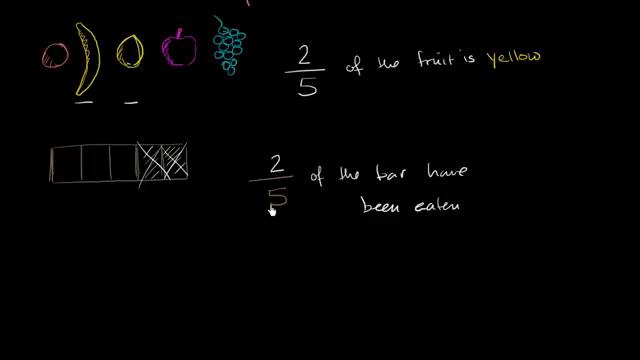 2/5 of the fruit is yellow
2/5 of the bar have
been eaten